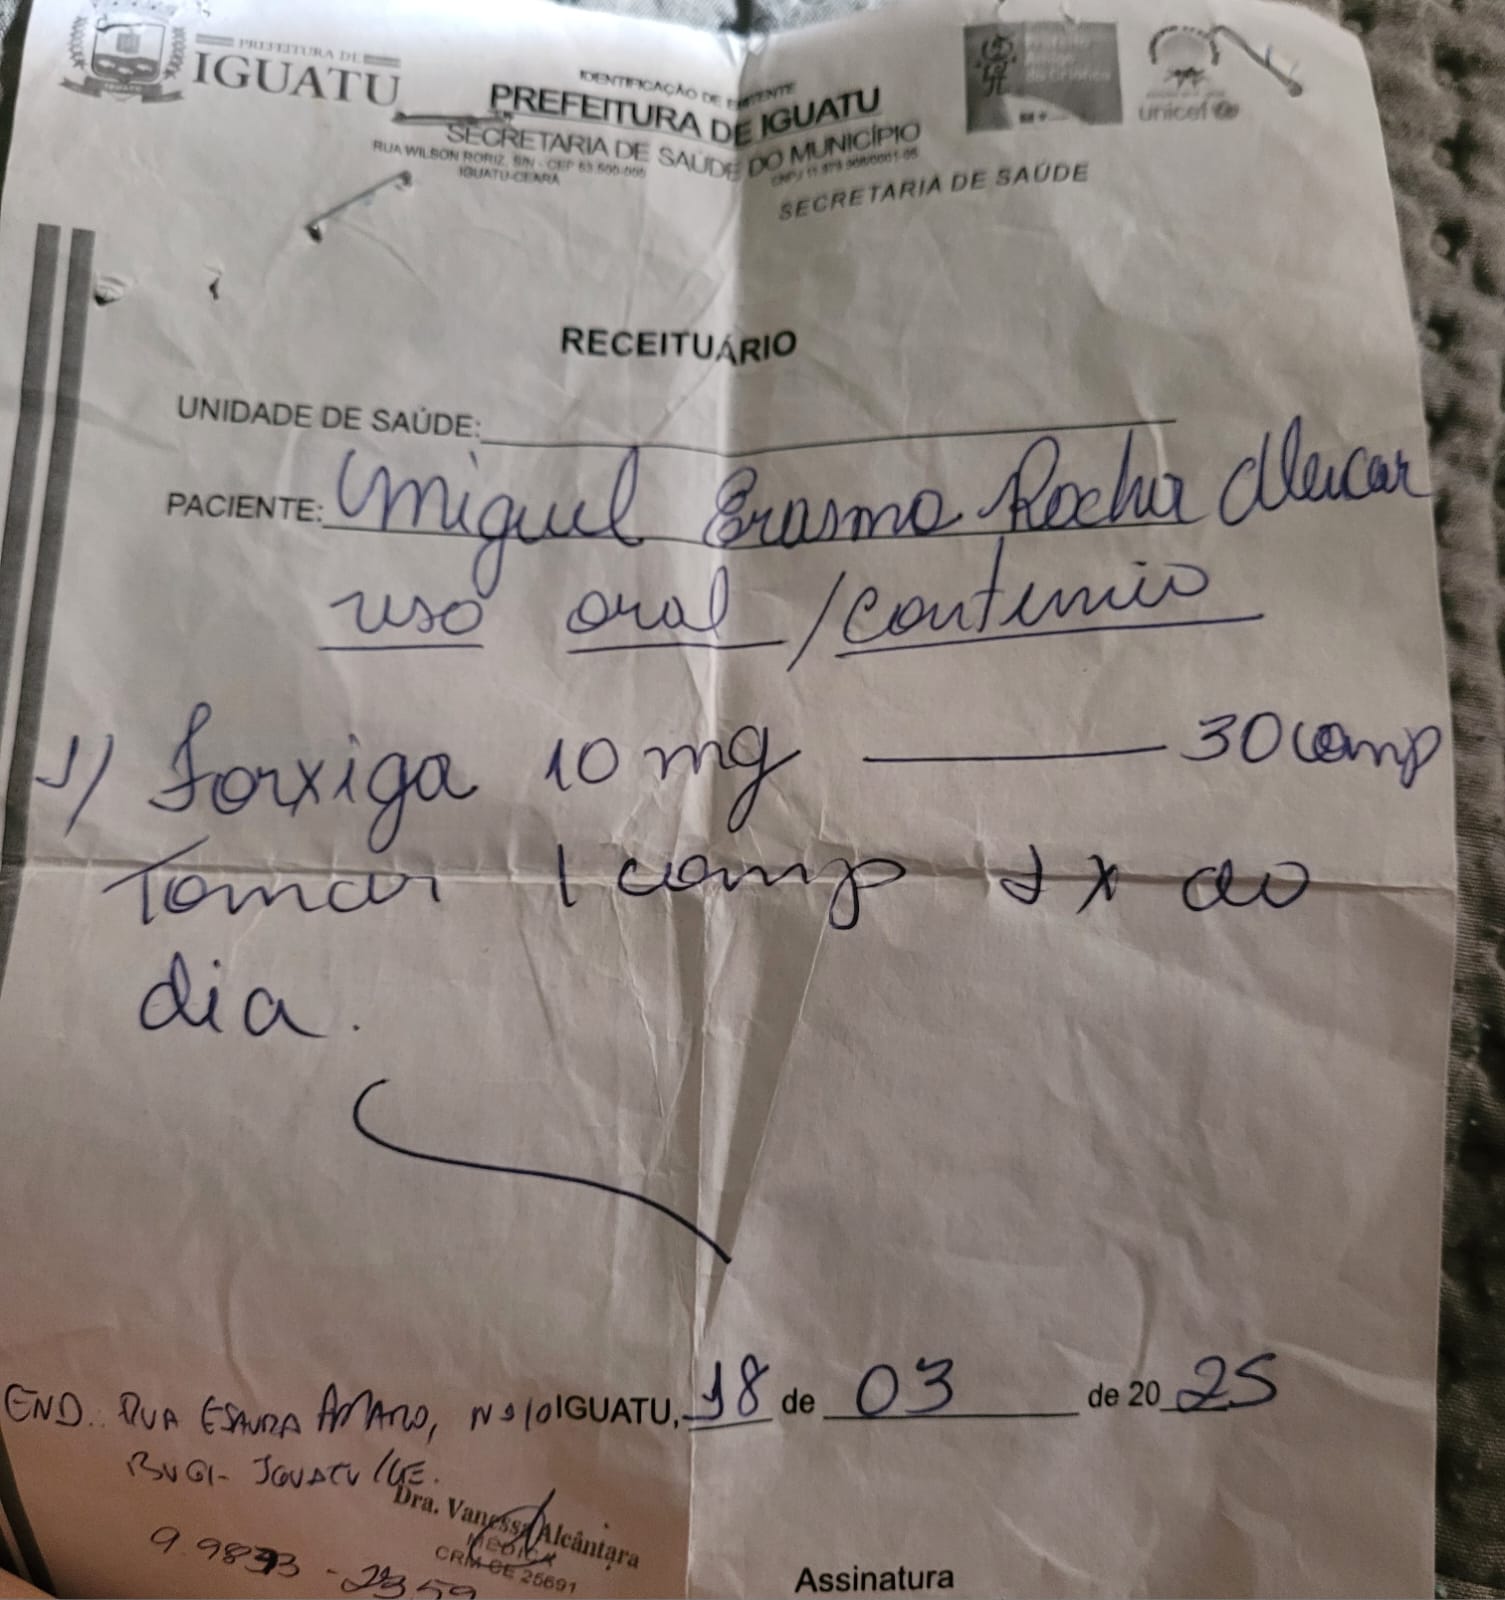 PREFEITURA DE
IGUATU
IDENTIFICAÇÃO DE EMITENTE
PREFEITURA DE IGUATU
SECRETARIA DE SAÚDE DO MUNICÍPIO
RUA WILSON RORIZ, S/N - CEP 63.500-000
IGUATU-CEARÁ
SECRETARIA DE SAÚDE
unicef
RECEITUÁRIO
UNIDADE DE SAÚDE:
PACIENTE: Miguel Erasmo Rocha Alencar
uso oral / contínuo
1) Forxiga 10 mg ——— 30 comp
Tomar 1 comp 1 x ao
dia.
IGUATU, 18 de 03 de 20 25
END. RUA ESAURA AMARO,
BUGI - IGUATU / CE.
Dra. Vanessa Alcântara
MÉDICA
CRM-CE 25691
Assinatura